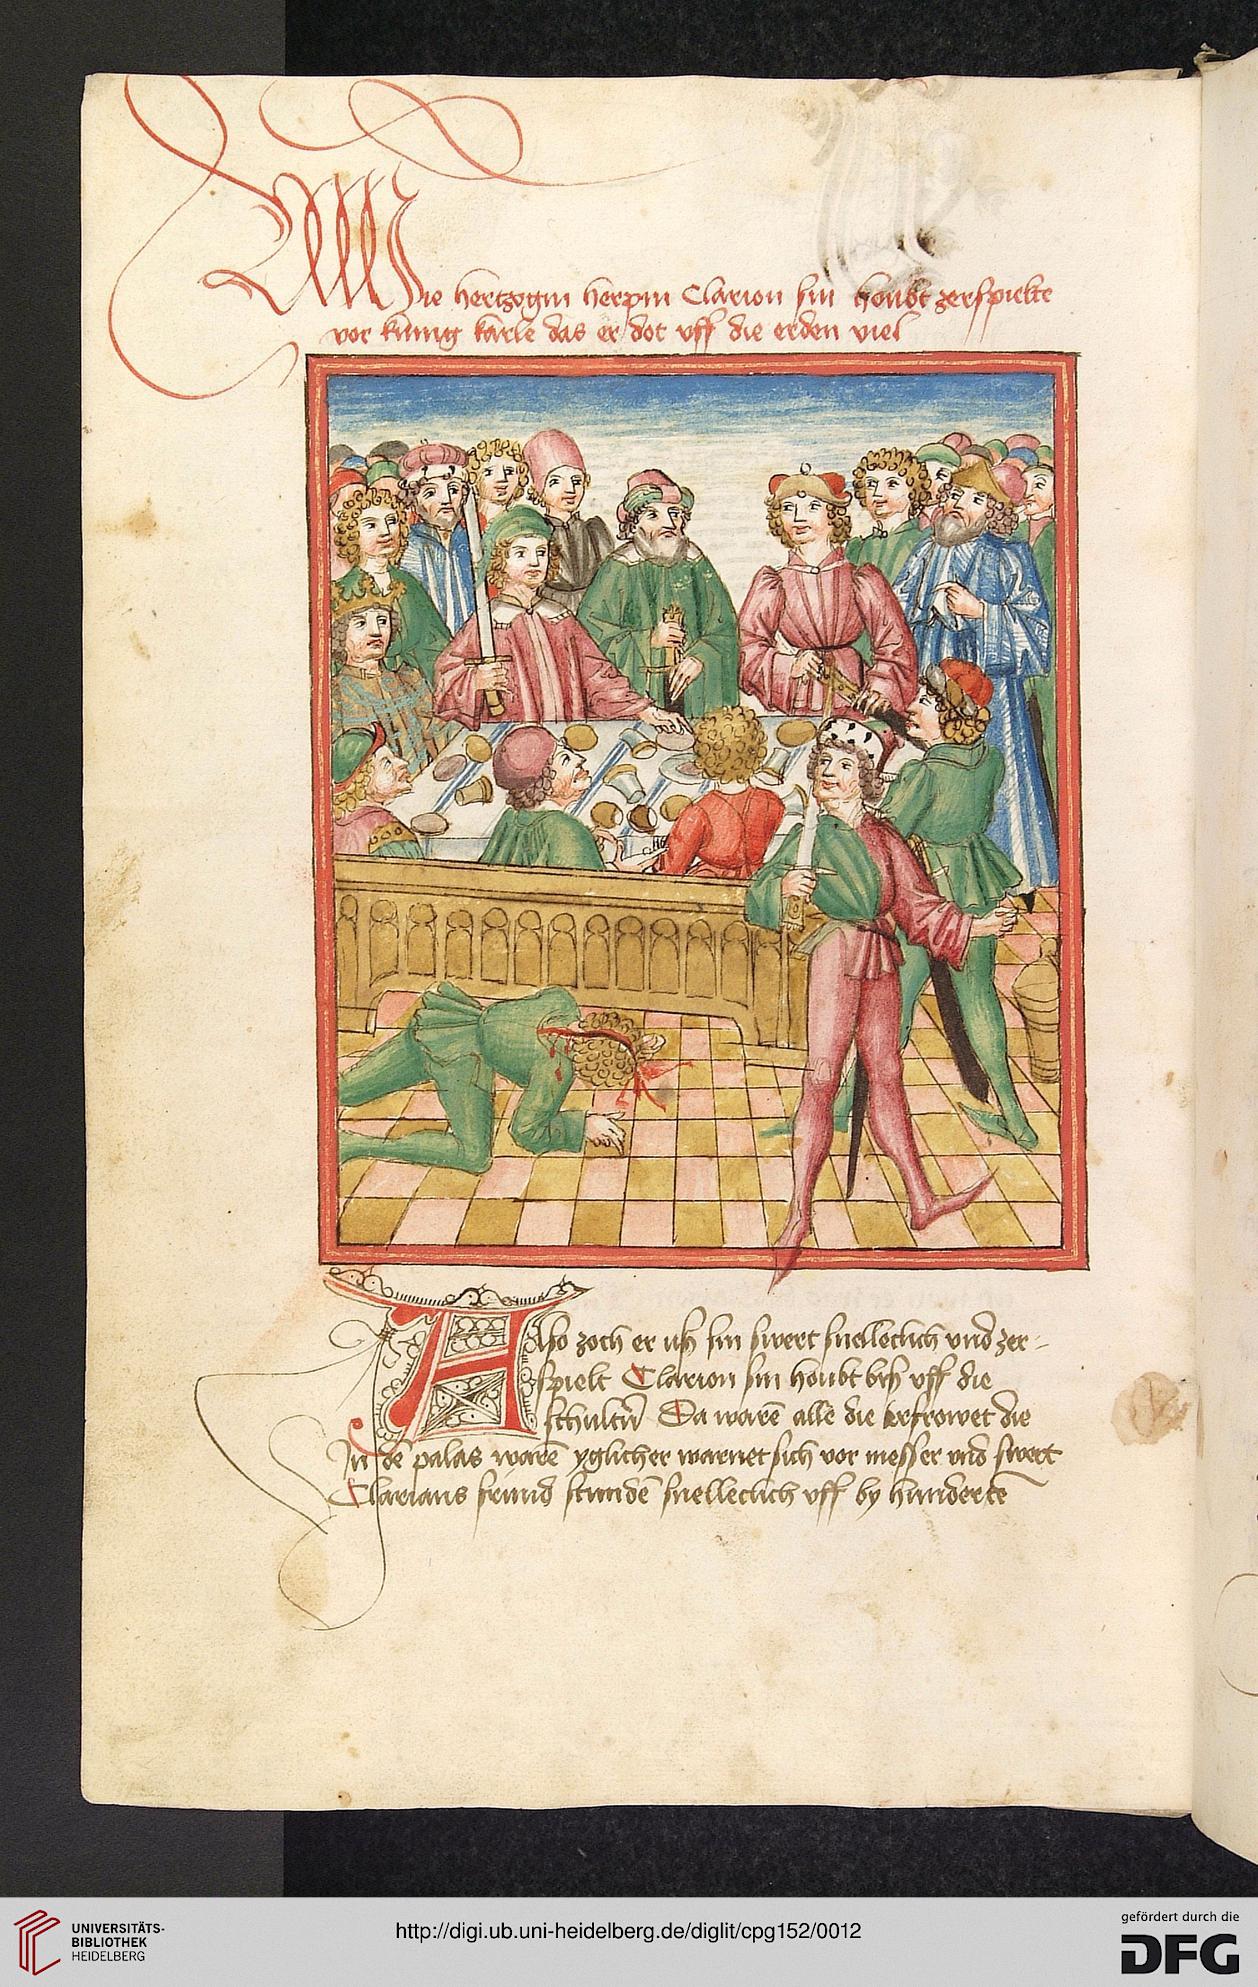 Wie hertzogin herpin Clarion sin houbt zerspielte
vor kunig karle das er dot uff die erden viel
Also zoch er uß sin swert snelleclich vnd zer-
spielt Clarion sin houbt biß uff die
schultern Da warē alle die erfrowet die
In dē palas warē yglicher warnet sich vor messer vnd swert
Clarians frund stundē snelleclich uff by hundertē
UNIVERSITÄTS-
BIBLIOTHEK
HEIDELBERG
http://digi.ub.uni-heidelberg.de/diglit/cpg152/0012
gefördert durch die
DFG